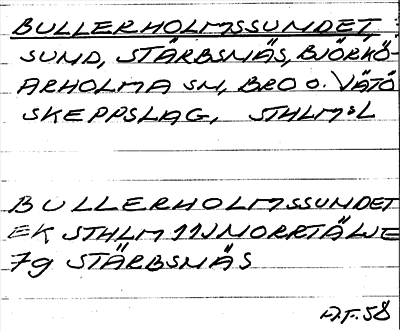 BULLERHOLMSSUNDET,
SUND, STÄRBSNÄS, BJÖRKÖ-
ARHOLMA SN, BRO O. VÄTÖ
SKEPPSLAG, STHLMSL
BULLERHOLMSSUNDET
EK STHLM 11J NORRTÄLJE
7g STÄRBSNÄS
A.F. 58